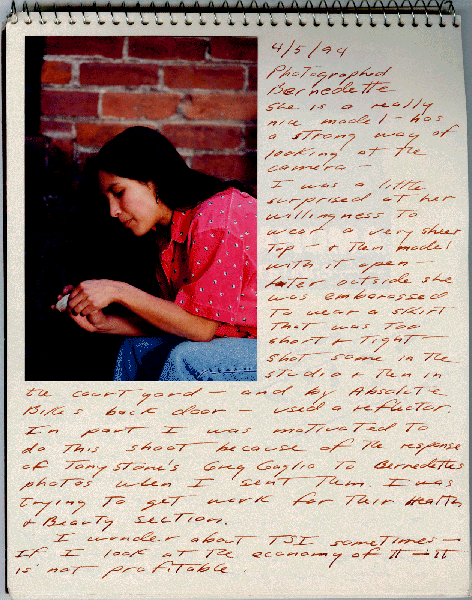 4/5/94
Photographed
Bernedette
She is a really
nice model - has
a strong way of
looking at the
camera -
I was a little
surprised at her
willingness to
wear a very sheer
top - + then model
with it open -
later outside she
was embarassed
to wear a skirt
that was too
short + tight -
shot some in the
studio + then in
the courtyard - and by Absolute
Bike's back door - used a reflector.
In part I was motivated to
do this shoot because of the response
of Tony Stone's Greg Gaglio to Bernedettes
photos when I sent them. I was
trying to get work for their Health
+ Beauty section.
I wonder about TSI sometimes -
If I look at the economy of it - it
is not profitable.